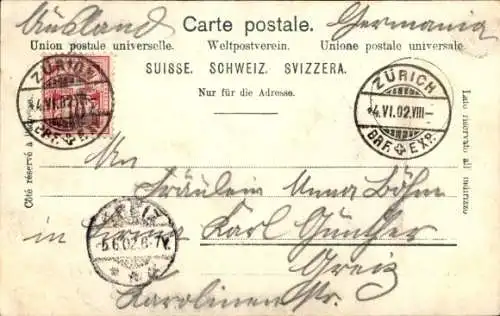 Ausland Carte postale. Germania
Union postale universelle. Weltpostverein. Unione postale universale
SUISSE. SCHWEIZ. SVIZZERA.
Nur für die Adresse.
ZÜRICH
4.VI.02
BRF. EXP.
ZÜRICH
4.VI.02.VIII-
BRF. EXP.
Côté réservé à
Lato riservato all indirizzo
An
Fräulein Anna Böhm
in Firma Karl Günther
Greiz
Karolinenstr.
GREIZ
5.6.02.6-7V.